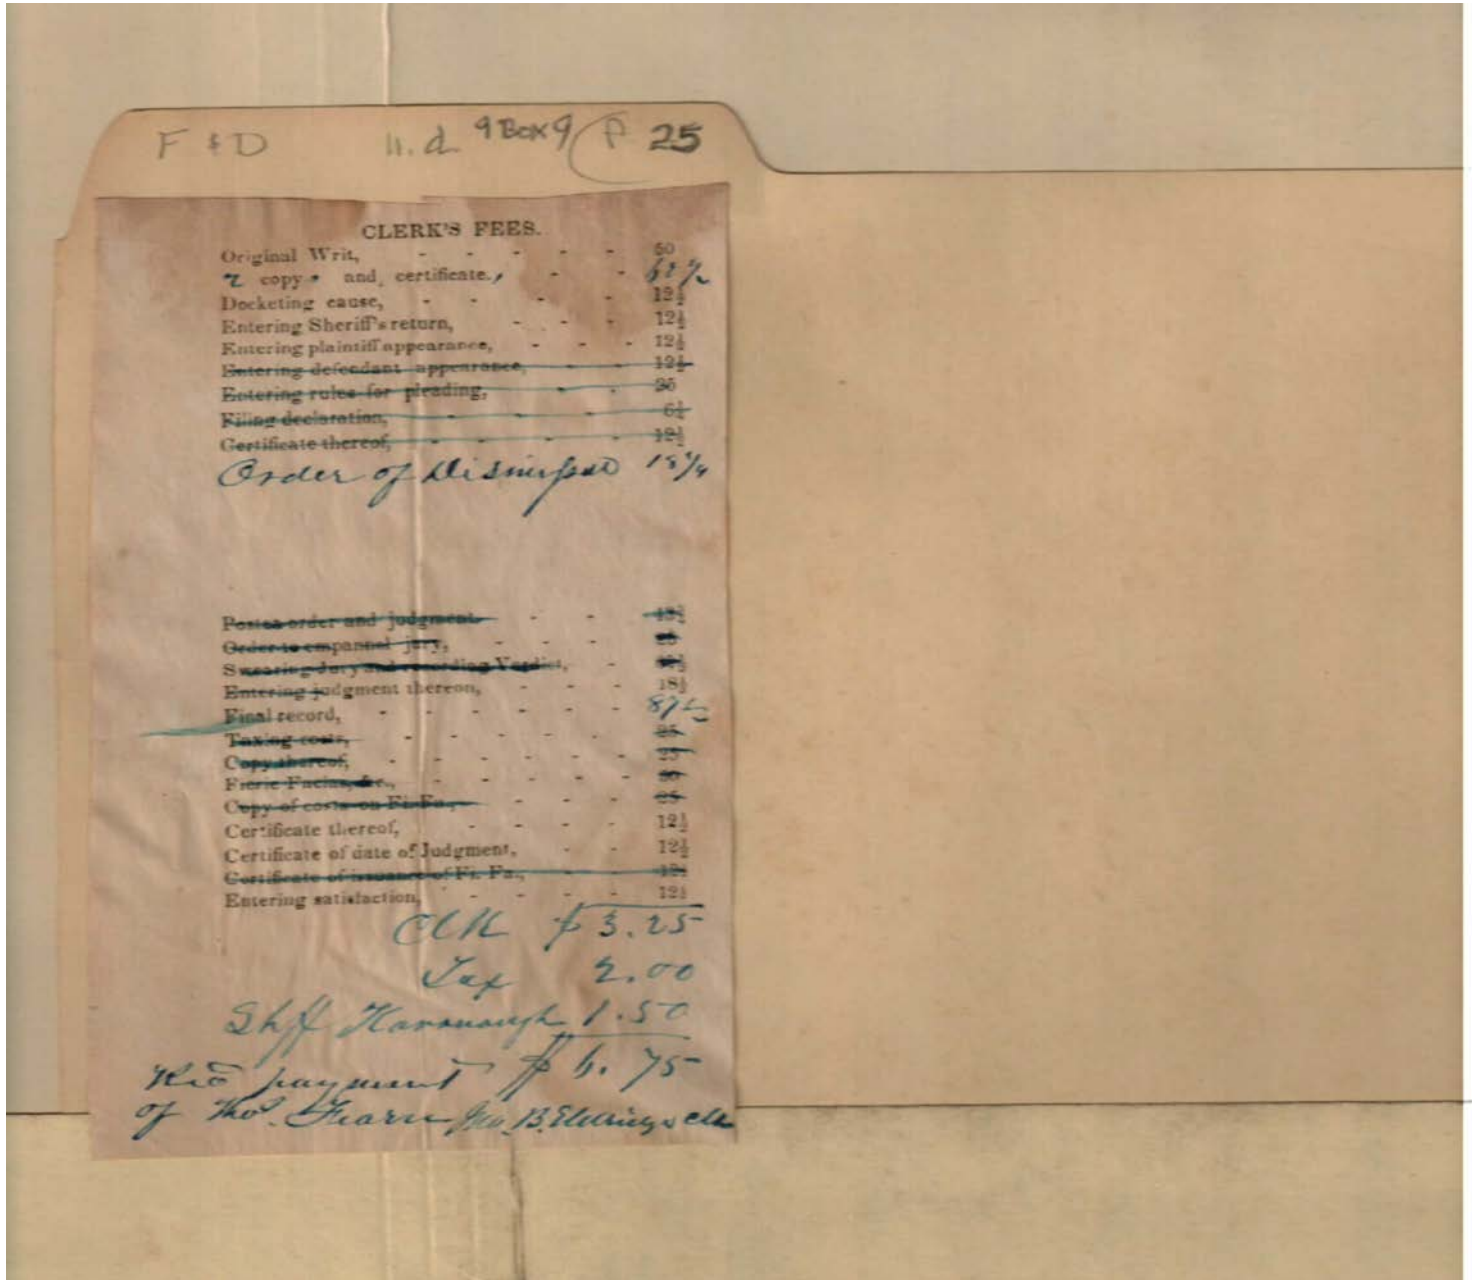 F & D n.d. 9 Box 9 P 25
CLERK'S FEES.
Original Writ, - - - - - 50
2 copy " and certificate., - - 62½
Docketing cause, - - - - 12½
Entering Sheriff's return, - - - 12½
Entering plaintiff appearance, - - - 12½
Entering defendant appearance, - - 12½
Entering rules for pleading, - - 25
Filing declaration, - - - - 6¼
Certificate thereof, - - - - 12½
Order of Dismissal 18¾
Postea order and judgment - -
Order to empannel jury, - - -
Swearing Jury and recording Verdict, -
Entering judgment thereon, - - - 18¾
Final record, - - - - - - 87½
Taxing costs, - - - - - 25
Copy thereof, - - - - - 25
Fieric Facias, &c., - - - - -
Copy of costs on Fi. Fa., - - - 25
Certificate thereof, - - - - 12½
Certificate of date of Judgment, - - 12½
Certificate of issuance of Fi. Fa., - 12½
Entering satisfaction, - - - - 12½
Clk $3.25
Tax 2.00
Shff Kavanaugh 1.50
$6.75
Recd payment
of Thos. Fearn Geo. B. Eldridge clk